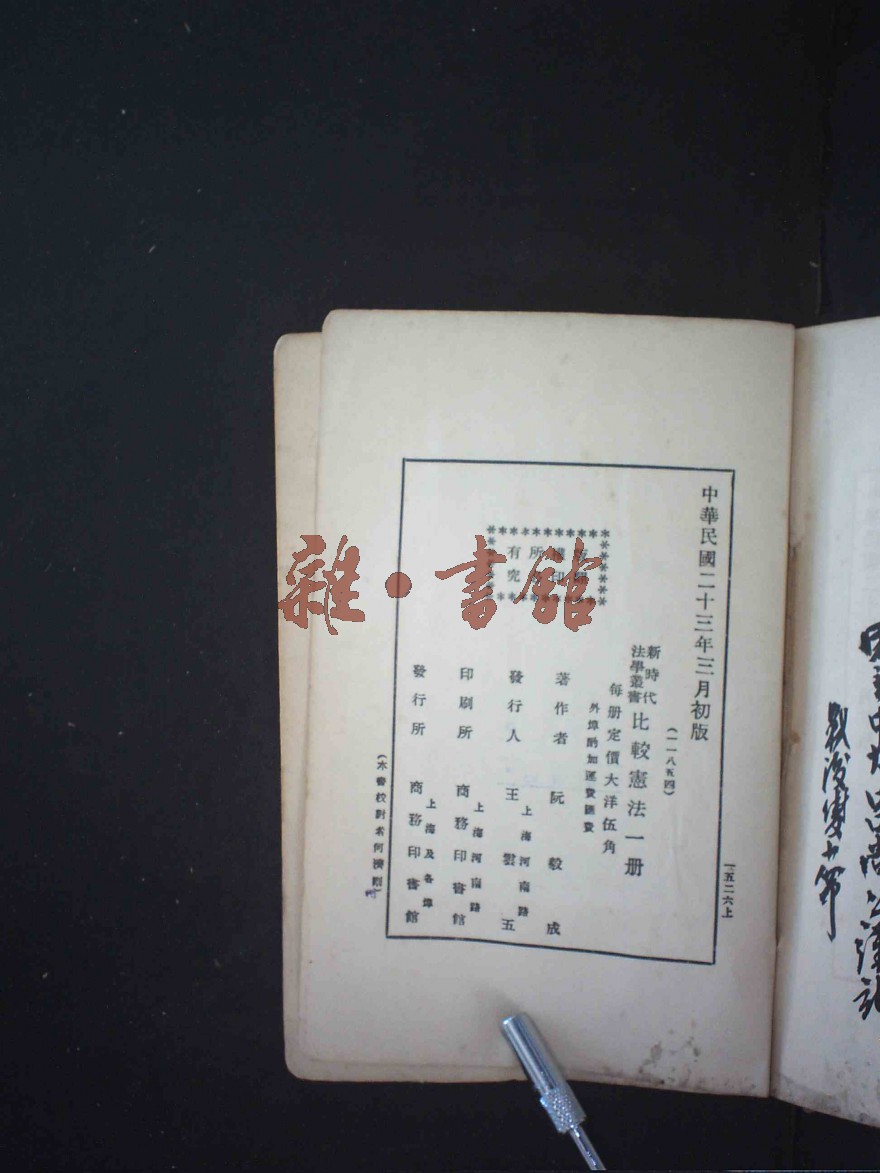 中華民國二十三年三月初版
(一一八五四)
新時代
法學叢書
比較憲法一册
每册定價大洋伍角
外埠酌加運費匯費
著作者 阮毅成
發行人 王雲五
上海河南路
印刷所 商務印書館
上海河南路
發行所 商務印書館
上海及各埠
(本書校對者何濟
版權所有
究
印
一五二六上
雜·書館